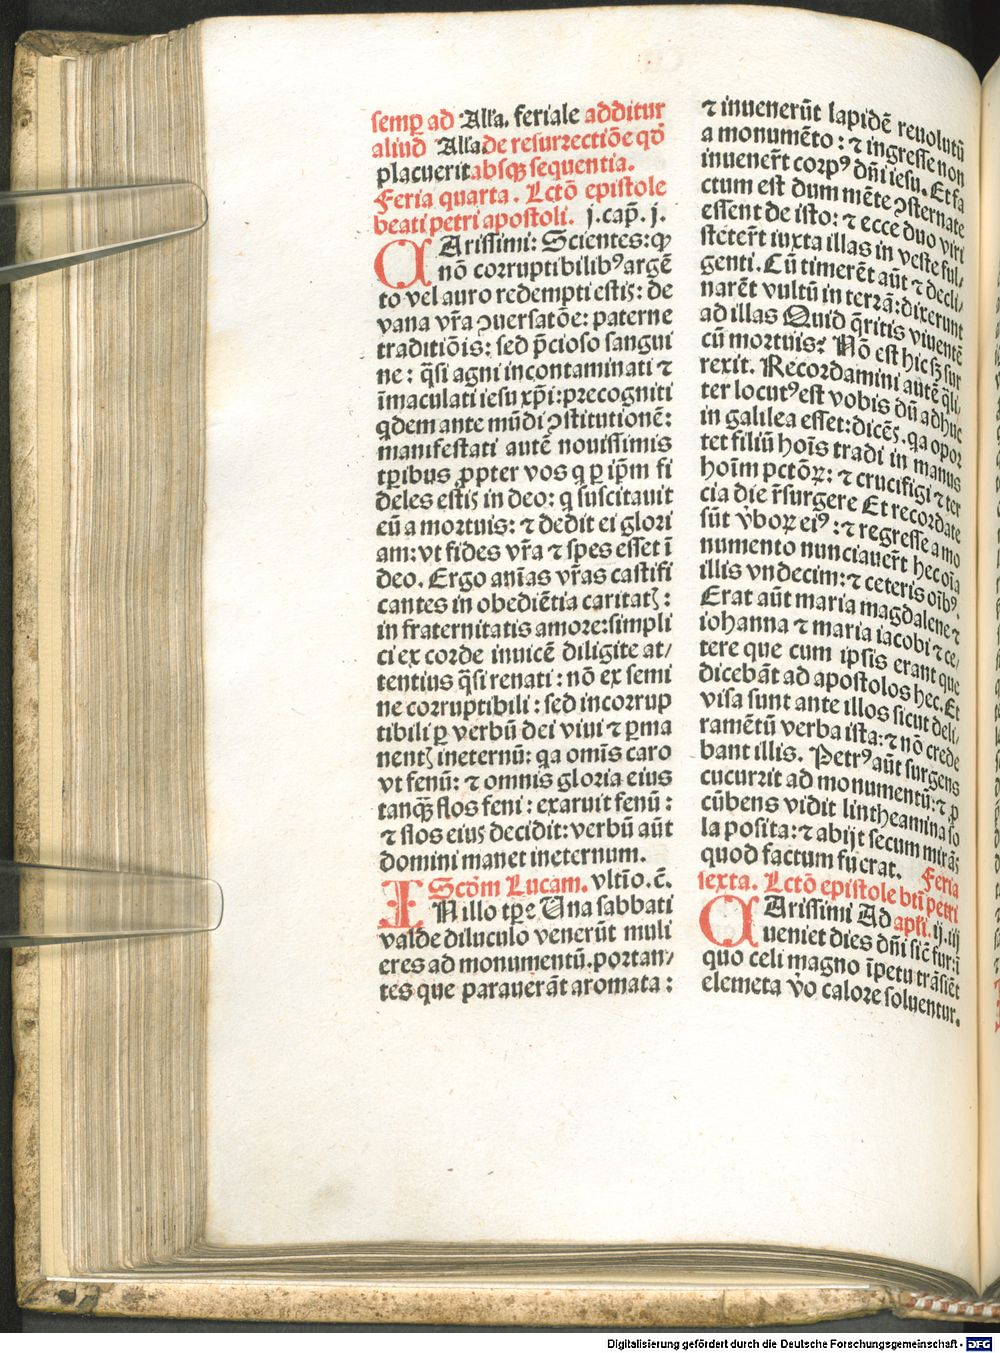 semꝑ ad All'a. feriale additur
aliud All'a de resurrectiōe qd̄
placuerit absqꝫ sequentia.
Feria quarta. Lctō epistole
beati petri apostoli. j. cap̄. j.
CArissimi: Scientes: ꝙ
nō corruptibilibꝰ argē
to vel auro redempti estis: de
vana vr̄a ꝯuersatōe: paterne
traditiōis: sed p̄cioso sangui
ne: q̄si agni incontaminati ⁊
īmaculati iesu xp̄i: precogniti
qdem ante mūdi ꝯstitutionē:
manifestati autē nouissimis
tp̄ibus ꝓpter vos q ꝑ ip̄m fi
deles estis in deo: q suscitauit
eū a mortuis: ⁊ dedit ei glori
am: vt fides vr̄a ⁊ spes esset ī
deo. Ergo anīas vr̄as castifi
cantes in obediētia caritatꝭ:
in fraternitatis amore: simpli
ci ex corde inuicē diligite at/
tentius q̄si renati: nō ex semi
ne corruptibili: sed incorrup
tibili ꝑ verbū dei viui ⁊ ꝑma
nentꝭ ineternū: qa omīs caro
vt fenū: ⁊ omnis gloria eius
tanqꝫ flos feni: exaruit fenū:
⁊ flos eius decidit: verbū aūt
domini manet ineternum.
Scōm Lucam. vltīo. c̄.
IN illo tꝑe Una sabbati
valde diluculo venerūt muli
eres ad monumentū. portan/
tes que parauerāt aromata:
⁊ inuenerūt lapidē reuolutū
a monumēto: ⁊ ingresse non
inuener̄t corpꝰ dn̄i iesu. Et fa
ctum est dum mēte ꝯsternate
essent de isto: ⁊ ecce duo viri
steter̄t iuxta illas in veste ful/
genti. Cū timerēt aūt ⁊ decli/
narēt vultū in terrā: dixerunt
ad illas Quid q̄ritis viuentē
cū mortuis? Nō est hic sꝫ sur
rexit. Recordamini autē q̄li/
ter locutꝰ est vobis dū adhuc
in galilea esset: dicēs. qa opor
tet filiū hoīs tradi in manus
hoīm pctōꝝ: ⁊ crucifigi ⁊ ter
cia die r̄surgere Et recordate
sūt v̄boꝝ eiꝰ: ⁊ regresse a mo
numento nunciauer̄t hec oīa
illis vndecim: ⁊ ceteris oībꝰ.
Erat aūt maria magdalene ⁊
iohanna ⁊ maria iacobi ⁊ ce/
tere que cum ipsis erant que
dicebāt ad apostolos hec. Et
visa sunt ante illos sicut deli/
ramētū verba ista: ⁊ nō crede
bant illis. Petrꝰ aūt surgens
cucurrit ad monumentū: ⁊ ꝓ
cūbens vidit lintheamina so
la posita: ⁊ abijt secum mirās
quod factum fuerat. Feria
sexta. Lctō epistole bt̄i petri
CArissimi Ad apl̄i. ij. iij
ueniet dies dn̄i sic̄ fur: ī
quo celi magno īpetu trāsiēt
elemeta v̄o calore soluentur.
Digitalisierung gefördert durch die Deutsche Forschungsgemeinschaft - DFG